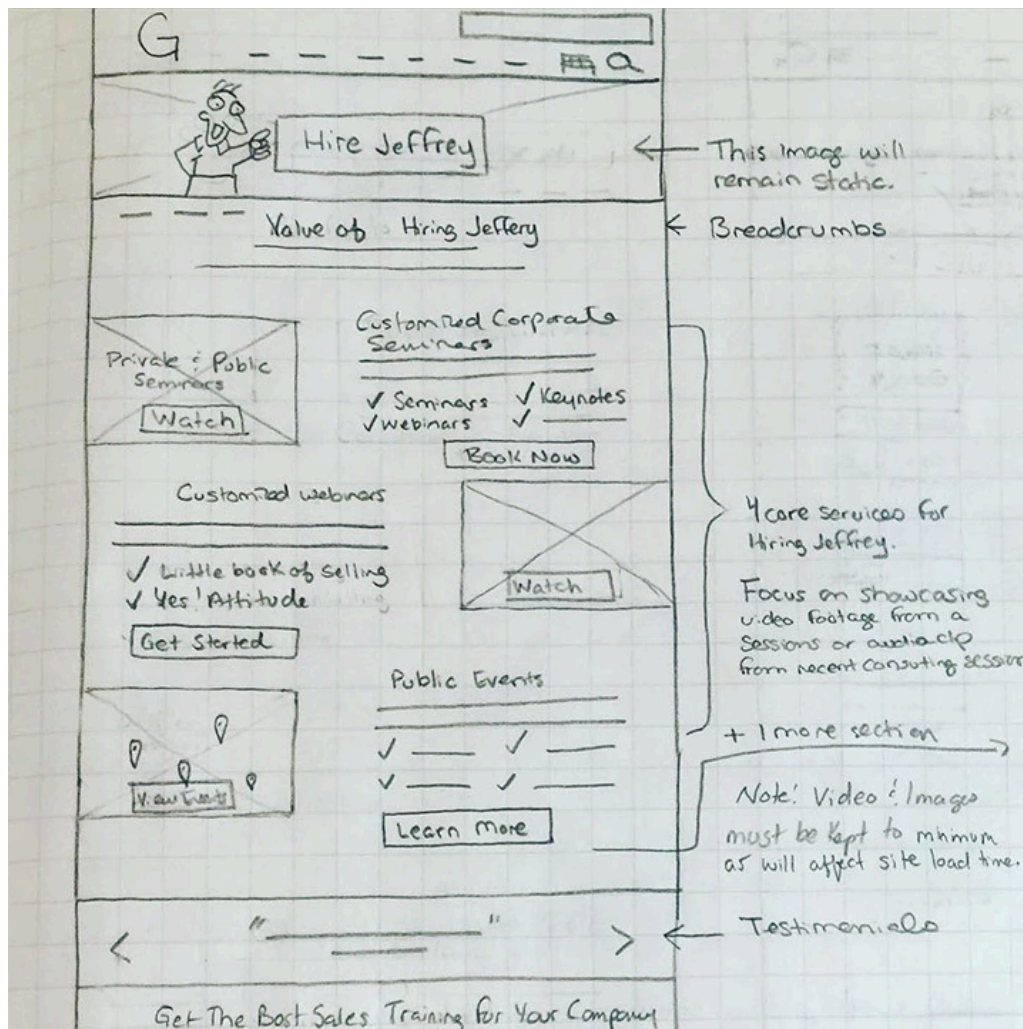 G
Hire Jeffrey
This Image will
remain static.
Value of Hiring Jeffery
Breadcrumbs
Private & Public
Seminars
Watch
Customized Corporate
Seminars
✓ Seminars ✓ Keynotes
✓ Webinars ✓
Book Now
Customized Webinars
✓ Little book of Selling
✓ Yes! Attitude
Get Started
Watch
4 core services for
Hiring Jeffrey.
Focus on showcasing
video footage from a
sessions or audio clip
from recent consulting session
View Events
Public Events
✓ ✓
✓ ✓
Learn More
+ 1 more section
Note: Video & Images
must be kept to minimum
as will affect site load time.
" "
< >
Testimonials
Get The Best Sales Training For Your Company